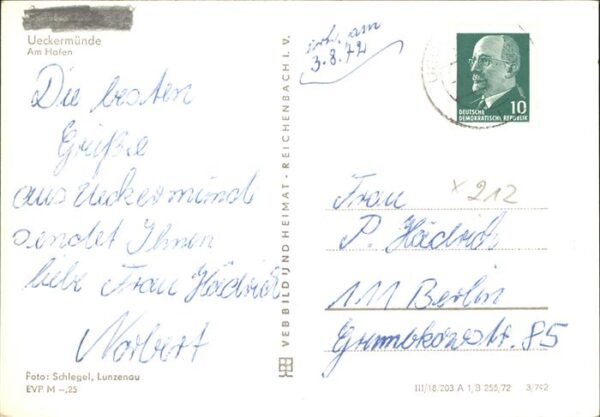 Ueckermünde
Am Hafen
Die besten
Grüße
aus Ueckermünde
sendet Ihnen
liebe Frau Hädrich
Norbert
Foto: Schlegel, Lunzenau
EVP M –,25
VEB BILD UND HEIMAT · REICHENBACH I. V.
erh. am
3.8.72
10
DEUTSCHE
DEMOKRATISCHE REPUBLIK
x 212
Frau
P. Hädrich
111 Berlin
Grumbkowstr. 85
III/18/203 A 1/B 255/72 3/742